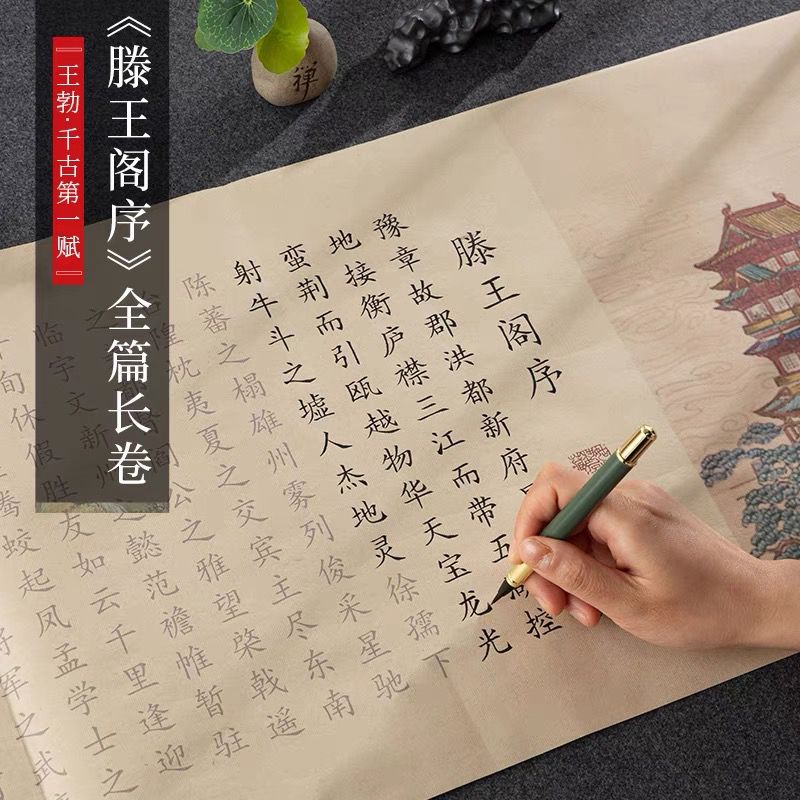 《滕王阁序》全篇长卷
『王勃·千古第一赋』
禅
滕王阁序
豫章故郡洪都新府
地接衡庐襟三江而带五湖控
蛮荆而引瓯越物华天宝龙光
射牛斗之墟人杰地灵徐孺下
陈蕃之榻雄州雾列俊采星驰
隍枕夷夏之交宾主尽东南
之阎公之雅望棨戟遥
临宇文新州之懿范襜帷暂驻
旬休假胜友如云千里逢迎
腾蛟起凤孟学士之
将军之武